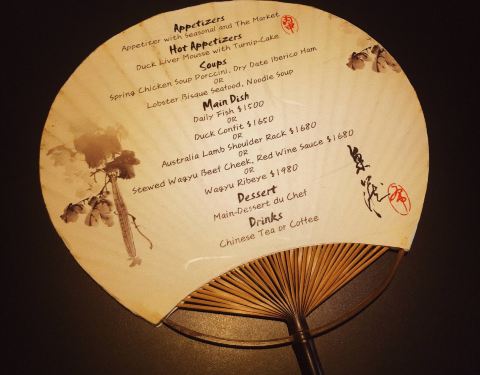 Appetizers
Appetizer with Seasonal and The Market
Hot Appetizers
Duck Liver Mousse with Turnip-Cake
Soups
Spring Chicken Soup Porccini, Dry Date Iberico Ham
OR
Lobster Bisque Seafood, Noodle Soup
Main Dish
Daily Fish $1500
OR
Duck Confit $1650
OR
Australia Lamb Shoulder Rack $1680
OR
Stewed Wagyu Beef Cheek, Red Wine Sauce $1680
OR
Wagyu Ribeye $1980
Dessert
Main-Dessert du Chef
Drinks
Chinese Tea or Coffee